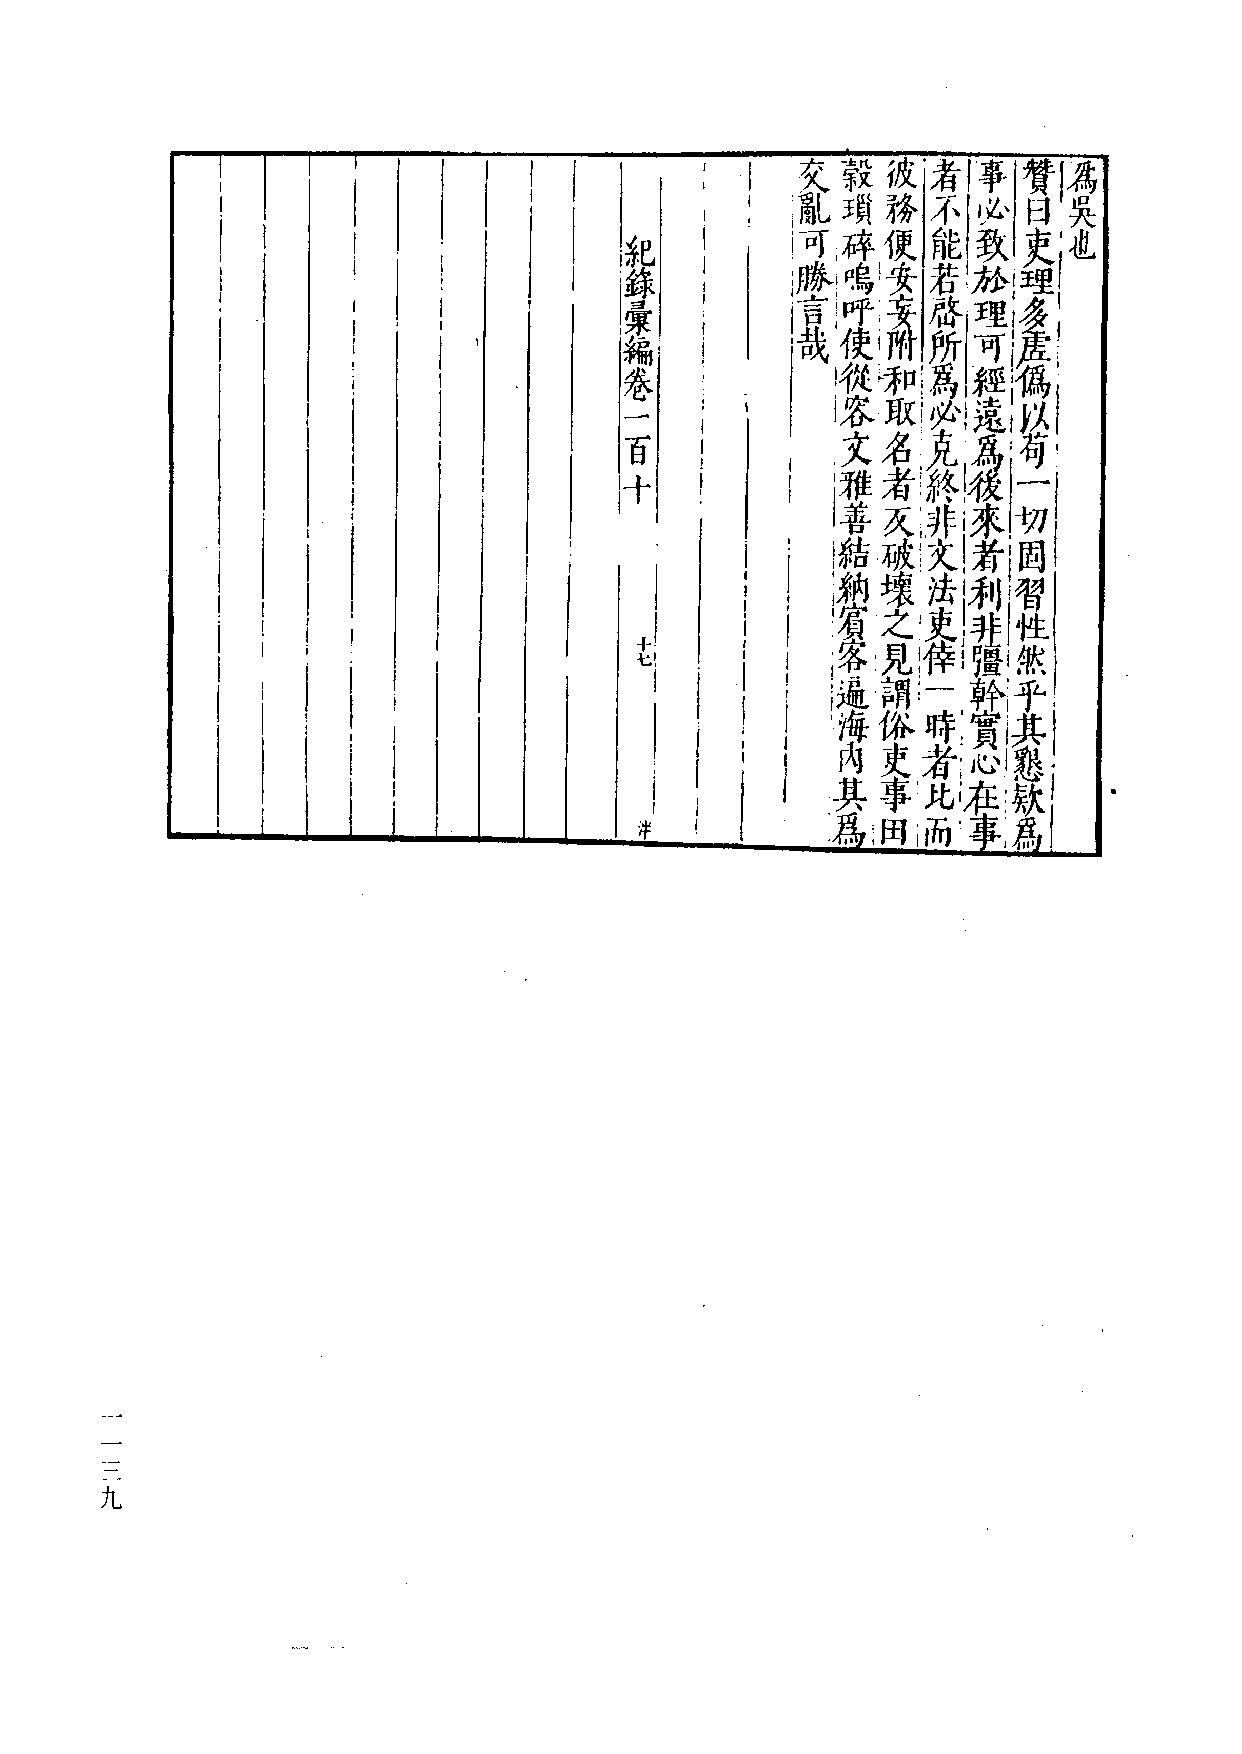 爲吳也
贊曰吏理多虛僞以苟一切固習性然乎其懇欵爲
事必致於理可經遠爲後來者利非彊幹實心在事
者不能若啓所爲必克終非文法吏倖一時者比而
彼務便安妄附和取名者反破壞之見謂俗吏事田
穀瑣碎嗚呼使從容文雅善結納賓客遍海內其爲
交亂可勝言哉
紀錄彙編卷一百十
十七
一一三九